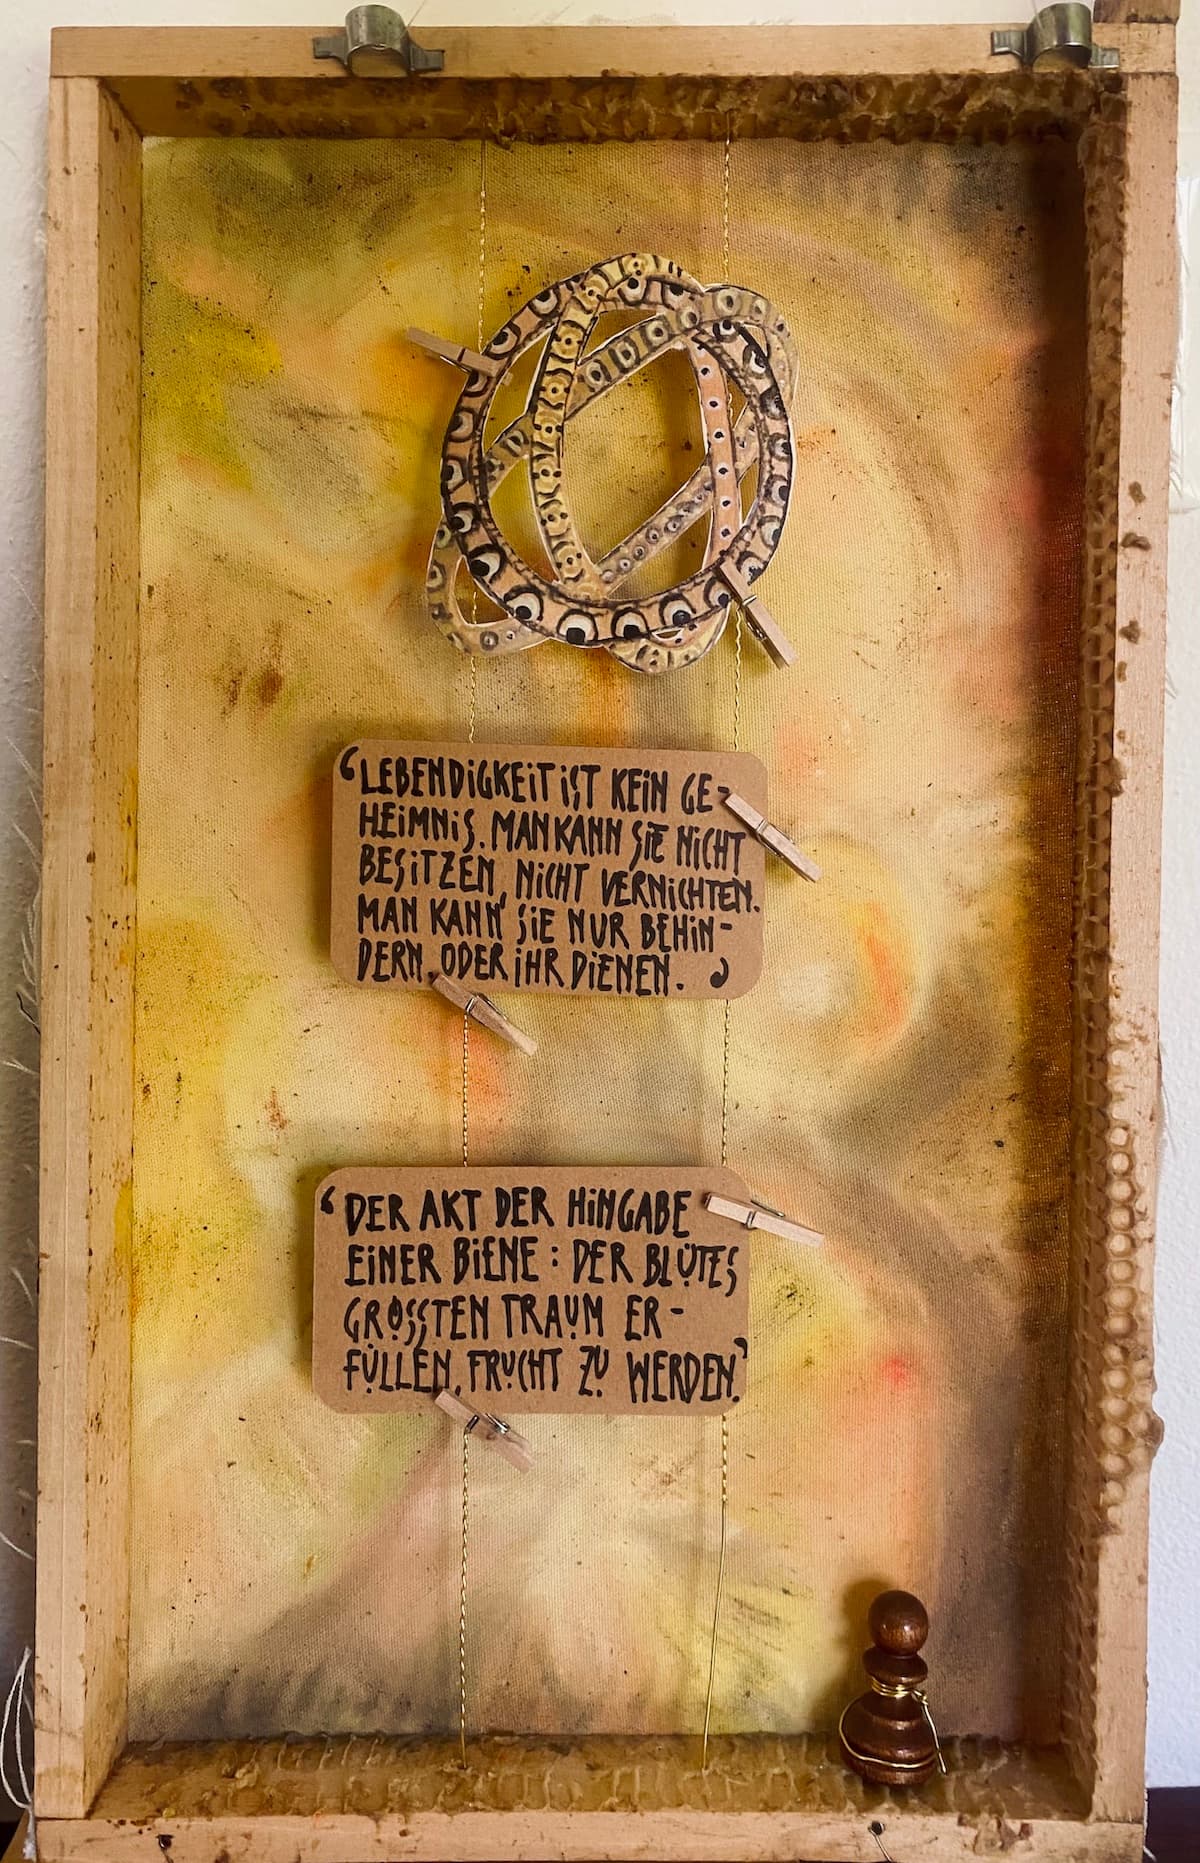 ‘LEBENDiGKEiT iST KEiN GE-
HEiMNiS. MAN KANN SiE NiCHT
BESiTZEN, NiCHT VERNiCHTEN.
MAN KANN SiE NUR BEHiN-
DERN. ODER iHR DiENEN.’
‘DER AKT DER HiNGABE
EiNER BiENE : DER BLÜTES
GRÖSSTEN TRAUM ER-
FÜLLEN, FRUCHT ZU WERDEN.’